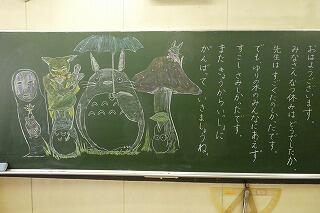 おはようございます。
みなさん冬休みはどうでしたか。
先生は、すっごくたのしかったです。
でも、ゆり木のみんなにあえず
すこしさみしかったです。
またきょうからいっしょに
がんばっていきましょうね。